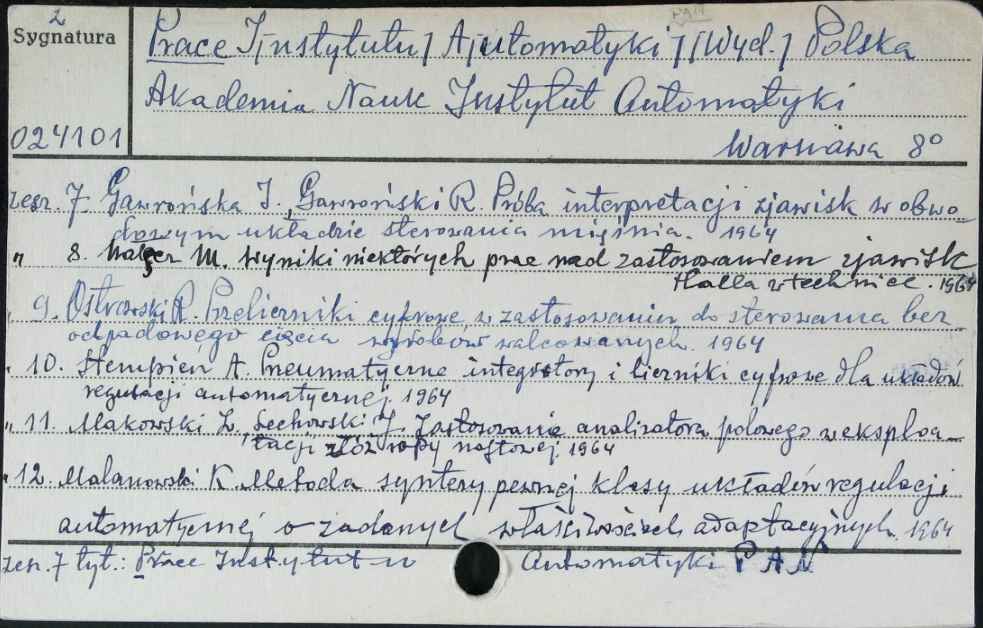 2
Sygnatura
Prace I[nstytutu] A[utomatyki] [Wyd.] Polska
Akademia Nauk Instytut Automatyki
024101
Warszawa 8°
zesz. 7. Gawrońska I., Gawroński R. Próba interpretacji zjawisk w obwo-
dowym układzie sterowania mięśnia. 1964
" 8. M. Wyniki niektórych prac nad zastosowaniem zjawisk
Halla w technice. 1964
" 9. Ostrowski R. Przeliczniki cyfrowe w zastosowaniu do sterowania bez
odpadowego cięcia wyrobów walcowanych. 1964
" 10. Stempień A. Pneumatyczne integratory i liczniki cyfrowe dla układów
regulacji automatycznej. 1964
" 11. Makowski L., Lechowski J. Zastosowanie analizatora polowego w eksploa-
tacji złóż ropy naftowej 1964
" 12. Malanowski K. Metoda syntezy pewnej klasy układów regulacji
automatycznej o zadanych właściwościach adaptacyjnych. 1964
zesz. 7 tyt.: Prace Instytutu Automatyki PAN